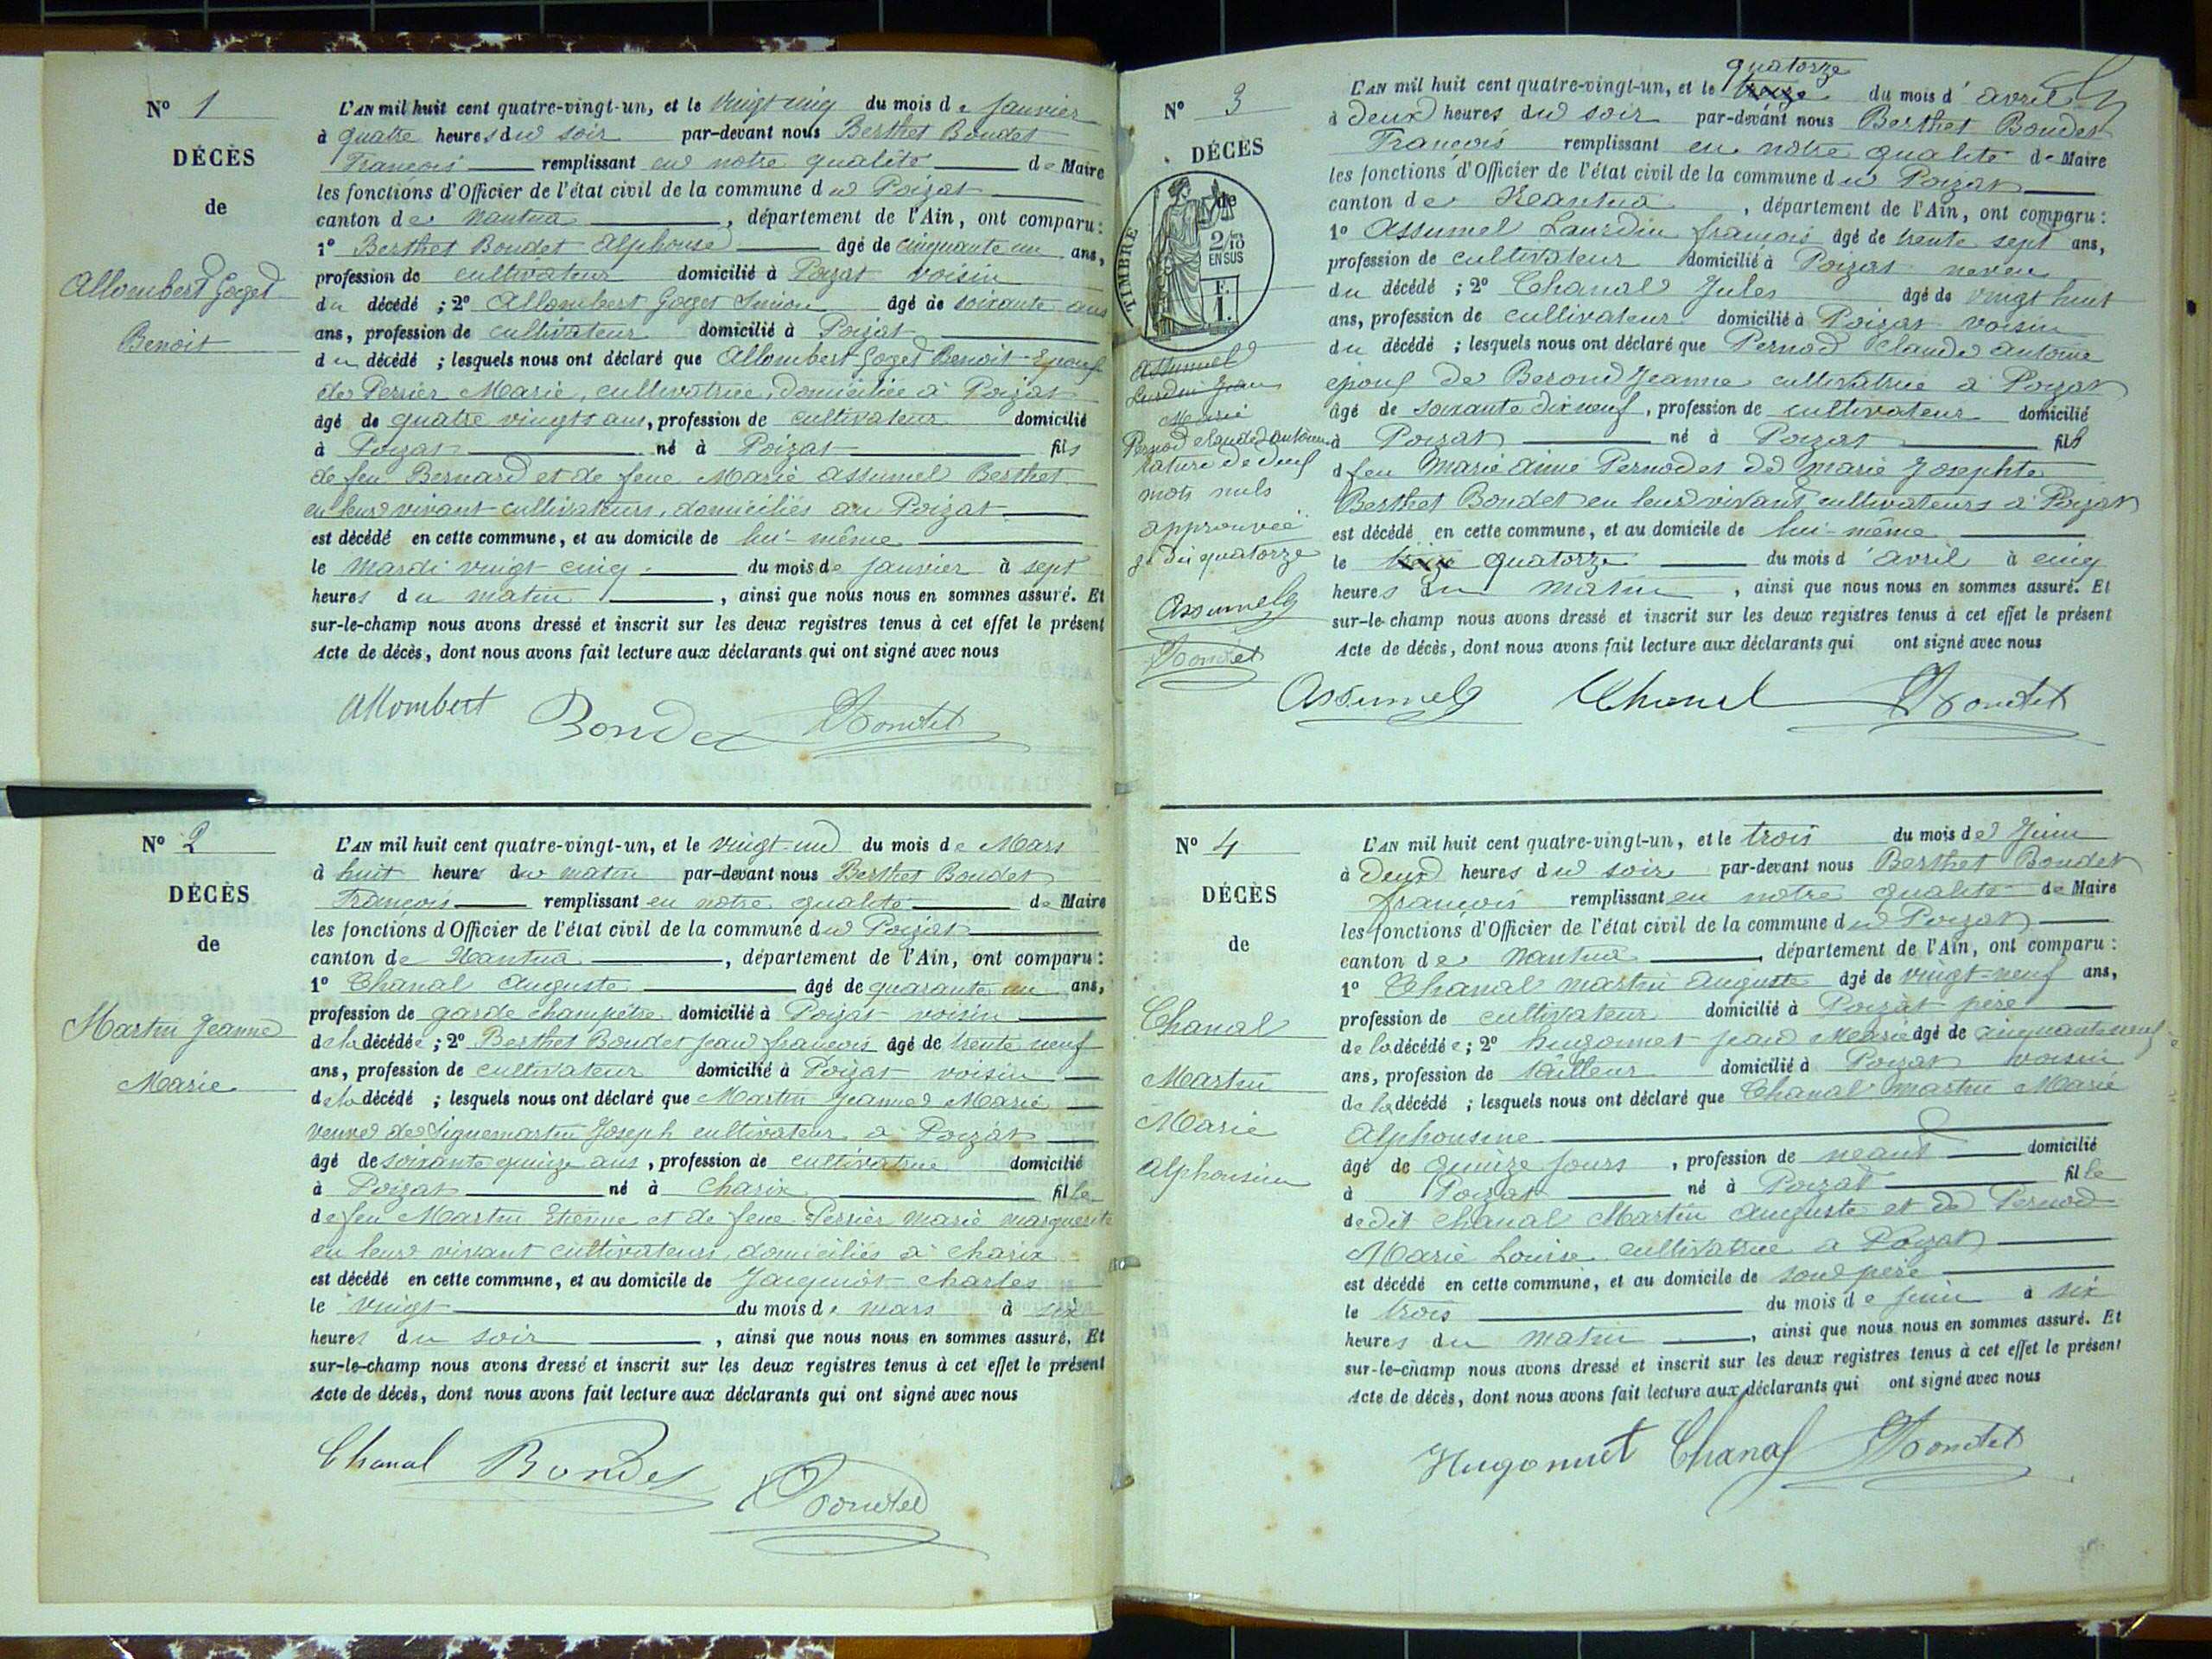 N° 1
DÉCÈS
de
Allombert Goget
Benoit
L'AN mil huit cent quatre-vingt-un, et le vingt cinq du mois de Janvier
à quatre heures du soir par-devant nous Berthet Bondet
François remplissant en notre qualité de Maire
les fonctions d'Officier de l'état civil de la commune du Poizat
canton de Nantua, département de l'Ain, ont comparu :
1° Berthet Bondet Alphonse âgé de cinquante un ans,
profession de cultivateur domicilié à Poizat voisin
du décédé ; 2° Allombert Goget Simon âgé de soixante ans
ans, profession de cultivateur domicilié à Poizat
du décédé ; lesquels nous ont déclaré que Allombert Goget Benoit Epoux
de Perrier Marie, cultivatrice, domiciliée à Poizat
âgé de quatre vingts ans, profession de cultivateur domicilié
à Poizat né à Poizat fils
de feu Bernard et de feue Marie Assumel Berthet
en leur vivant cultivateurs, domiciliés au Poizat
est décédé en cette commune, et au domicile de lui-même
le Mardi vingt cinq du mois de Janvier à sept
heures du matin, ainsi que nous nous en sommes assuré. Et
sur-le-champ nous avons dressé et inscrit sur les deux registres tenus à cet effet le présent
Acte de décès, dont nous avons fait lecture aux déclarants qui ont signé avec nous
Allombert Bondet Bondet
N° 2
DÉCÈS
de
Martin Jeanne
Marie
L'AN mil huit cent quatre-vingt-un, et le vingt-un du mois de Mars
à huit heures du matin par-devant nous Berthet Bondet
François remplissant en notre qualité de Maire
les fonctions d'Officier de l'état civil de la commune du Poizat
canton de Nantua, département de l'Ain, ont comparu :
1° Chanal Auguste âgé de quarante un ans,
profession de garde champêtre domicilié à Poizat voisin
de la décédée ; 2° Berthet Bondet Jean françois âgé de trente neuf
ans, profession de cultivateur domicilié à Poizat voisin
de la décédé ; lesquels nous ont déclaré que Martin Jeanne Marie
veuve de Piquemartin Joseph cultivateur à Poizat
âgé de soixante quinze ans, profession de cultivatrice domicilié
à Poizat né à Charix fille
de feu Martin Etienne et de feue Perrier Marie Marguerite
en leur vivant cultivateurs, domiciliés à Charix
est décédé en cette commune, et au domicile de Jacquiot Charles
le vingt du mois de mars à six
heures du soir, ainsi que nous nous en sommes assuré. Et
sur-le-champ nous avons dressé et inscrit sur les deux registres tenus à cet effet le présent
Acte de décès, dont nous avons fait lecture aux déclarants qui ont signé avec nous
Chanal Bondet Bondet
N° 3
DÉCÈS
de
TIMBRE
2/10
EN SUS
F.
1.
Assumel
Lurdin Jean
Marie
Pernod Claude Antoine
rature de deux
mots nuls
approuvée
dix quatorze
Assumel
Bondet
quatorze
L'AN mil huit cent quatre-vingt-un, et le treize du mois d'avril
à deux heures du soir par-devant nous Berthet Bondet
François remplissant en notre qualité de Maire
les fonctions d'Officier de l'état civil de la commune du Poizat
canton de Nantua, département de l'Ain, ont comparu :
1° Assumel Lourdin françois âgé de trente sept ans,
profession de cultivateur domicilié à Poizat neveu
du décédé ; 2° Chanal Jules âgé de vingt huit
ans, profession de cultivateur domicilié à Poizat voisin
du décédé ; lesquels nous ont déclaré que Pernod Claude Antoine
epoux de Beroud Jeanne cultivatrice à Poizat
âgé de soixante dix neuf, profession de cultivateur domicilié
à Poizat né à Poizat fils
d feu Marie Aimé Pernod et de Marie Josephte
Berthet Bondet en leur vivant cultivateurs à Poizat
est décédé en cette commune, et au domicile de lui-même
le treize quatorze du mois d'avril à cinq
heures du matin, ainsi que nous nous en sommes assuré. Et
sur-le-champ nous avons dressé et inscrit sur les deux registres tenus à cet effet le présent
Acte de décès, dont nous avons fait lecture aux déclarants qui ont signé avec nous
Assumel Chanal Bondet
N° 4
DÉCÈS
de
Chanal
Martin
Marie
Alphonsine
L'AN mil huit cent quatre-vingt-un, et le trois du mois de Juin
à Deux heures du soir par-devant nous Berthet Bondet
françois remplissant en notre qualité de Maire
les fonctions d'Officier de l'état civil de la commune du Poizat
canton de Nantua, département de l'Ain, ont comparu :
1° Chanal Martin Auguste âgé de vingt-neuf ans,
profession de cultivateur domicilié à Poizat père
de la décédée ; 2° hugonnet Jean Marie âgé de cinquante neuf
ans, profession de tailleur domicilié à Poizat voisin
de la décédé ; lesquels nous ont déclaré que Chanal Martin Marie
Alphonsine
âgé de quinze jours, profession de neant domicilié
à Poizat né à Poizat fille
de dit Chanal Martin Auguste et de Pernod
Marie Louise cultivatrice à Poizat
est décédé en cette commune, et au domicile de son père
le trois du mois de juin à six
heures du matin, ainsi que nous nous en sommes assuré. Et
sur-le-champ nous avons dressé et inscrit sur les deux registres tenus à cet effet le présent
Acte de décès, dont nous avons fait lecture aux déclarants qui ont signé avec nous
Hugonnet Chanal Bondet